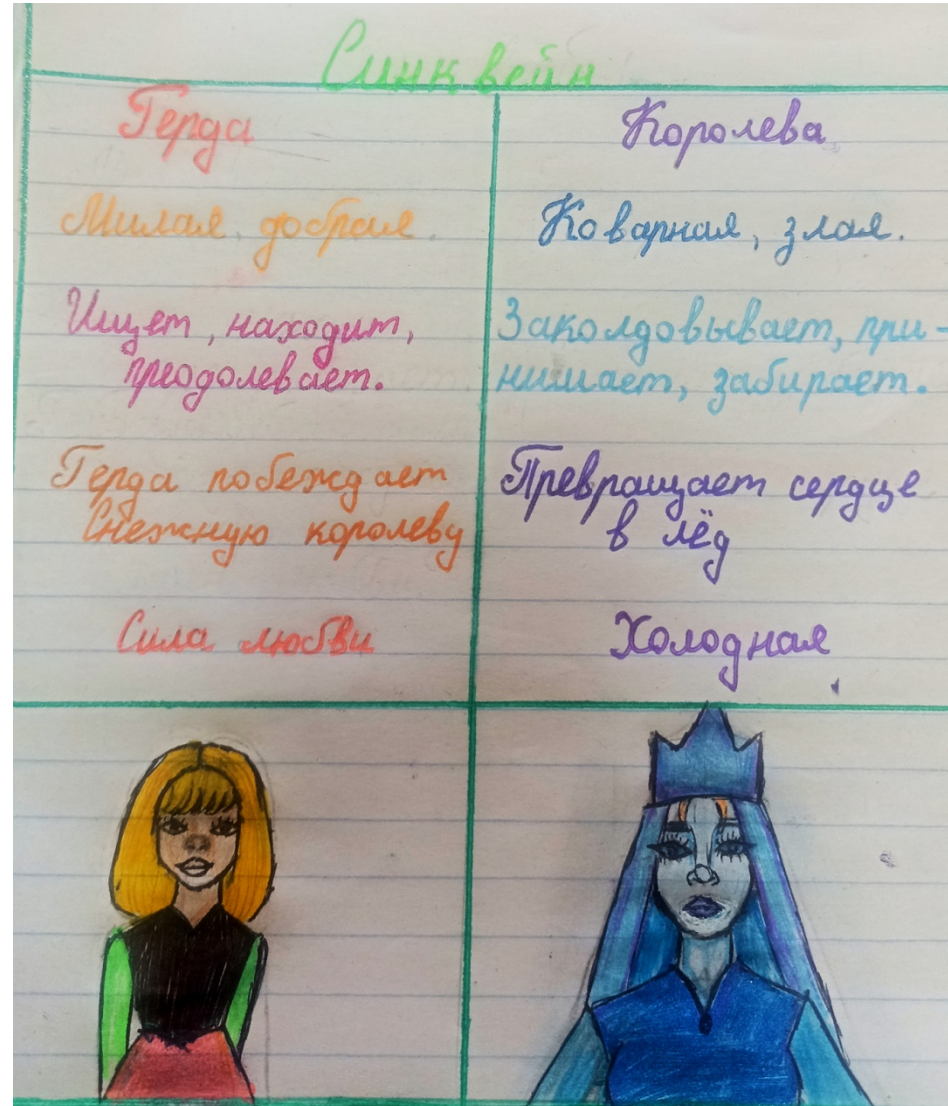 Синквейн
Герда
Милая, добрая.
Ищет, находит,
преодолевает.
Герда побеждает
Снежную королеву
Сила любви
Королева
Коварная, злая.
Заколдовывает, при-
нишает, забирает.
Превращает сердце
в лёд
Холодная